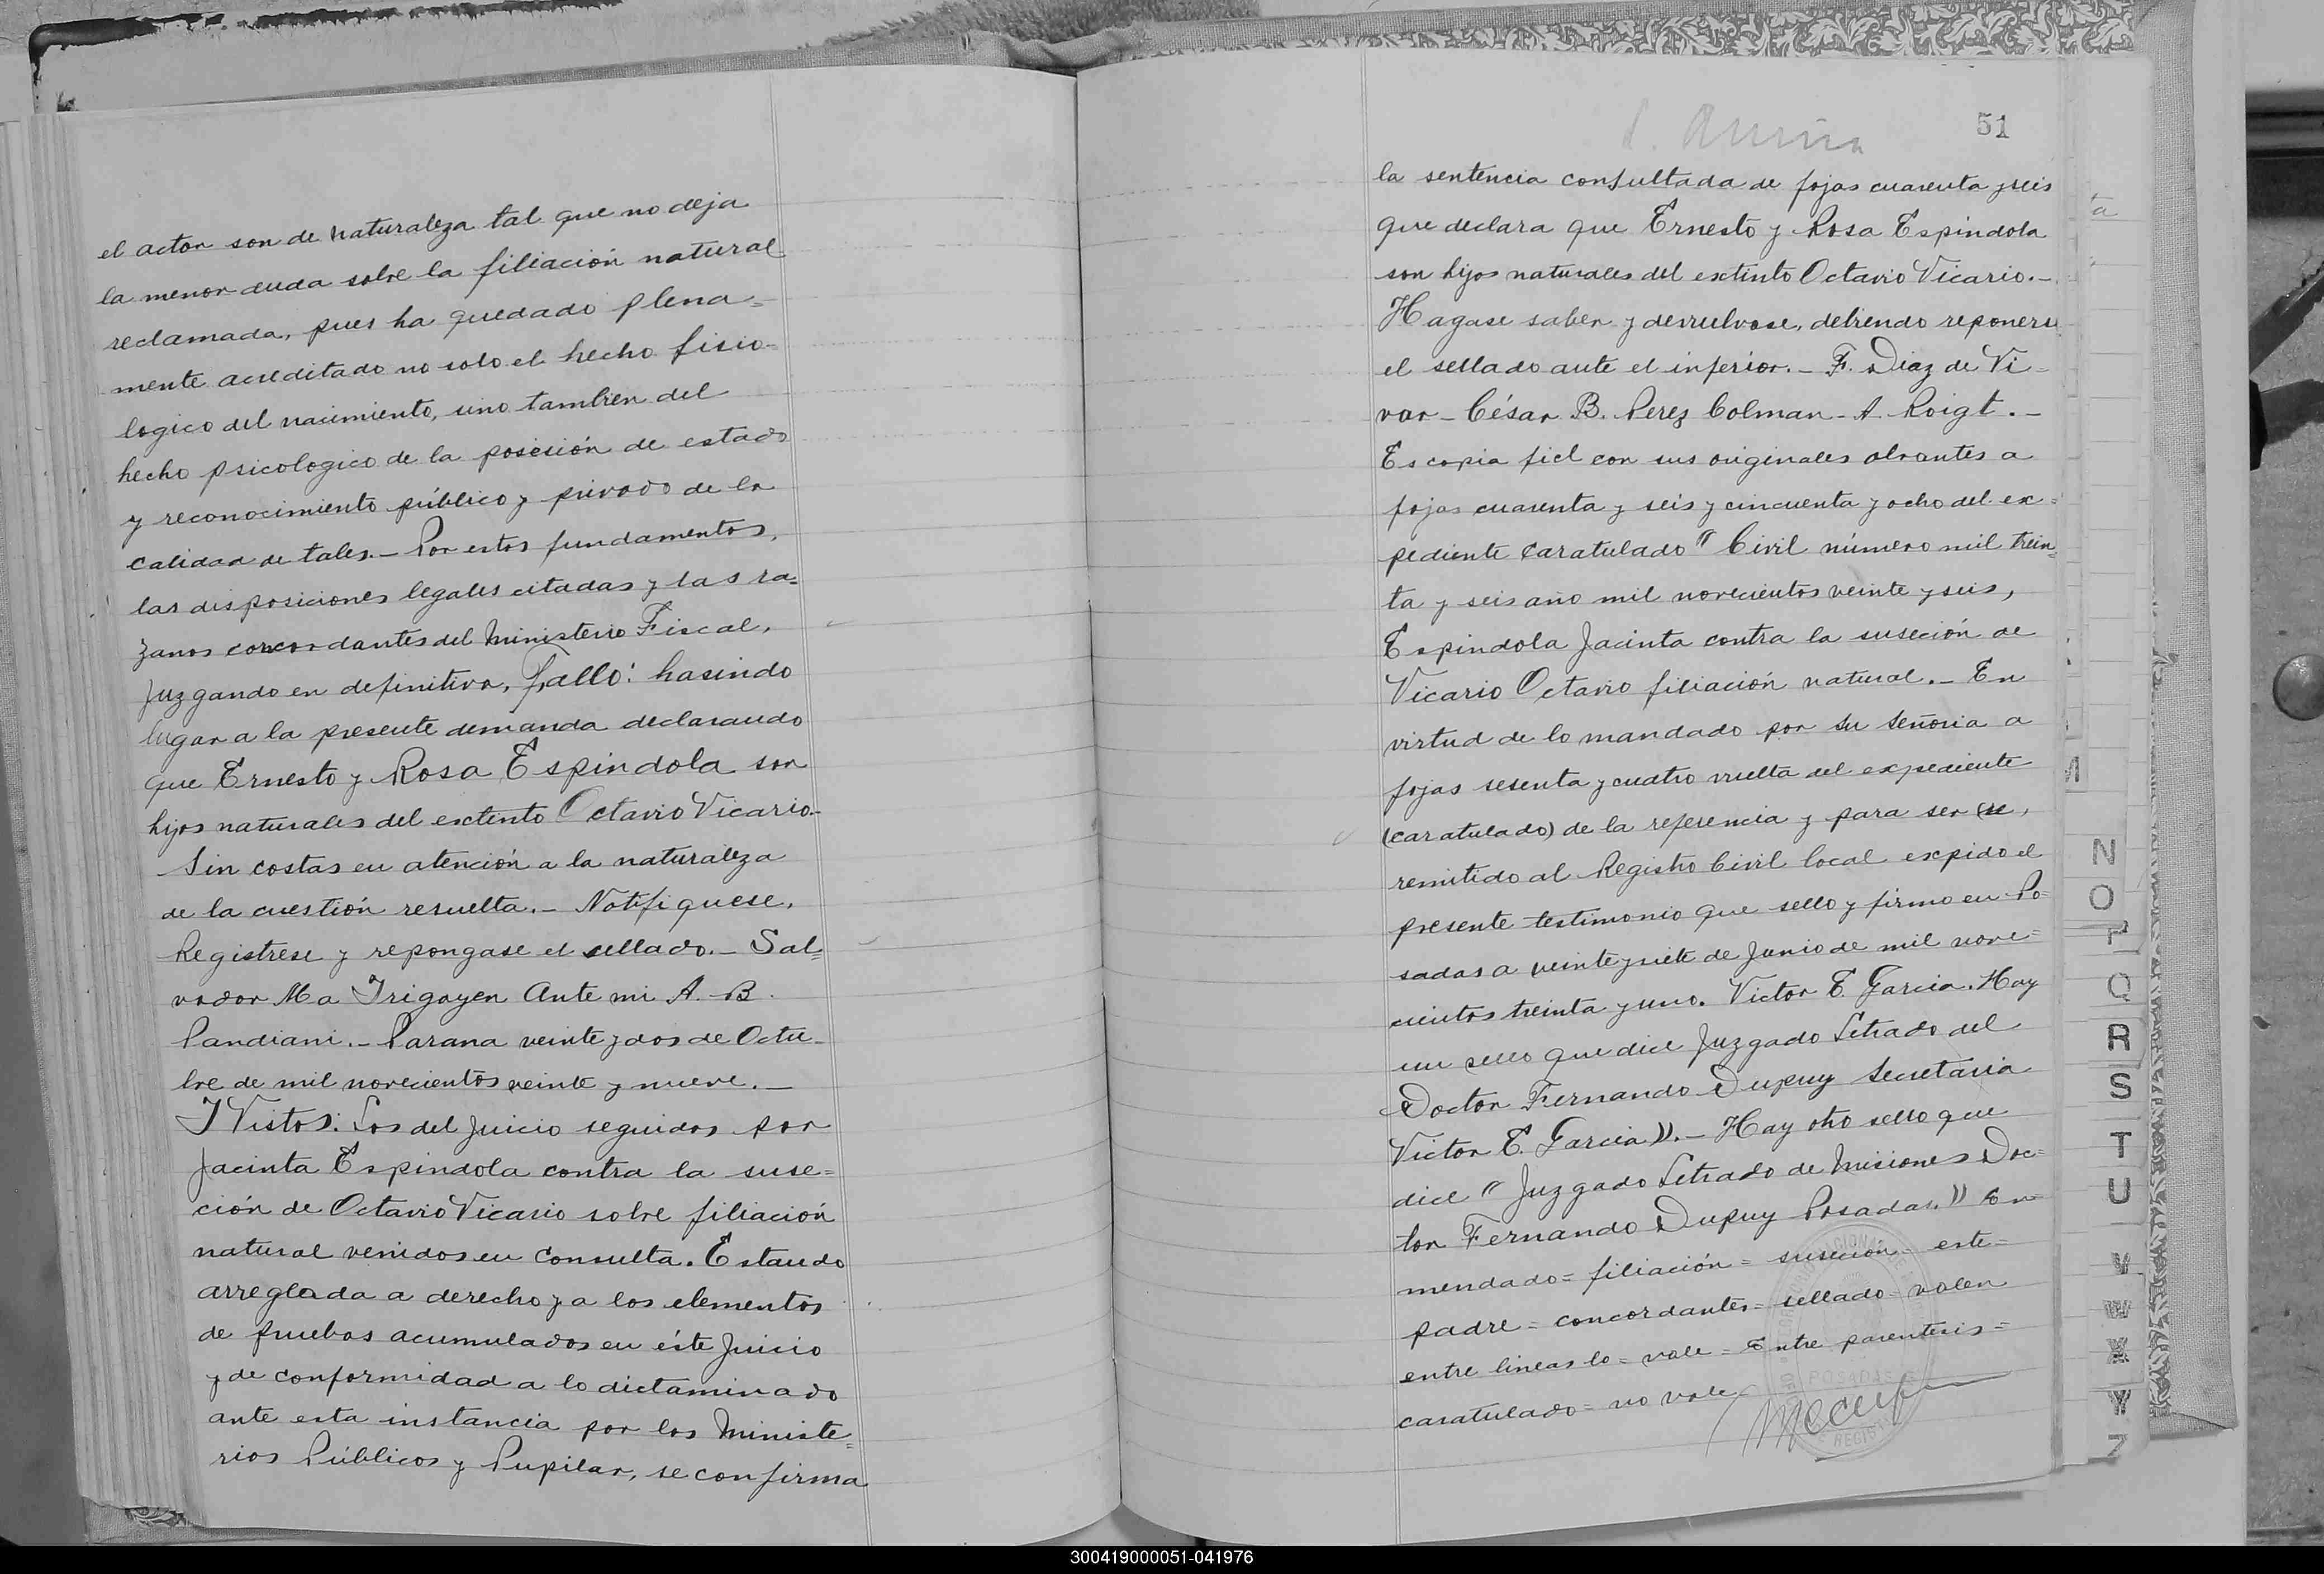 el actor son de naturaleza tal que no deja
la menor duda sobre la filiación natural
reclamada, pues ha quedado plena=
mente acreditado no solo el hecho fisio-
logico del nacimiento, sino tambien del
hecho psicologico de la posesión de estado
y reconocimiento público y privado de la
calidad de tales.- Por estos fundamentos,
las disposiciones legales citadas y las ra=
zanos concordantes del Ministerio Fiscal,
Juzgando en definitiva, fallo: hasindo
lugar a la presente demanda declarando
que Ernesto y Rosa Espindola son
hijos naturales del extinto Octavio Vicario.-
Sin costas en atención a la naturaleza
de la cuestión resuelta.- Notifiquese,
Registrese y repongase el sellado.- Sal=
vador Ma Irigoyen Ante mi A. B.
Pandiani.- Parana veinte y dos de Octu-
bre de mil novecientos veinte y nueve.-
Y Vistos: Los del Juicio seguidos por
Jacinta Espindola contra la suse=
ción de Octavio Vicario sobre filiación
natural venidos en consulta. Estando
arreglada a derecho y a los elementos
de pruebas acumulados en éste Juicio
y de conformidad a lo dictaminado
ante esta instancia por los Ministe=
rios Públicos y Pupilar, se confirma
51
la sentencia consultada de fojas cuarenta y seis
que declara que Ernesto y Rosa Espindola
son hijos naturales del extinto Octavio Vicario.-
Hagase saber y devuelvase, debiendo reponerse
el sellado ante el inferior.- F. Diaz de Vi-
var- César B. Perez Colman- A. Roigt.-
Es copia fiel con sus originales obrantes a
fojas cuarenta y seis y cincuenta y ocho del ex=
pediente caratulado "Civil número mil trein=
ta y seis año mil novecientos veinte y seis,
Espindola Jacinta contra la suseción de
Vicario Octavio filiación natural.- En
virtud de lo mandado por su señoria a
fojas sesenta y cuatro vuelta del expediente
(caratulado) de la referencia y para ser (se,
remitido al Registro Civil local expido el
presente testimonio que sello y firmo en Po=
sadas a veinte y siete de Junio de mil nove=
cientos treinta y uno. Victor E. Garcia. Hay
un sello que dice Juzgado Letrado del
Doctor Fernando Dupuy Secretaria
Victor E. Garcia)).- Hay otro sello que
dice "Juzgado Letrado de Misiones Doc=
tor Fernando Dupuy Posadas." En=
mendado= filiación= suseción= este=
padre= concordantes= sellado= valen
entre lineas lo= vale= Entre parentesis=
caratulado= no vale
POSADAS
N
O
P
Q
R
S
T
U
V
W
X
Y
Z
300419000051-041976